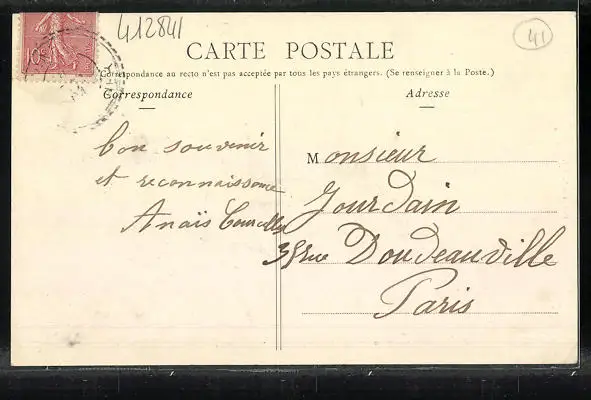 10c
412841
41
CARTE POSTALE
Correspondance au recto n'est pas acceptée par tous les pays étrangers. (Se renseigner à la Poste.)
Correspondance
Adresse
Bon souvenir
et reconnaissance
Anaïs
Monsieur
Jourdain
rue Doudeauville
Paris